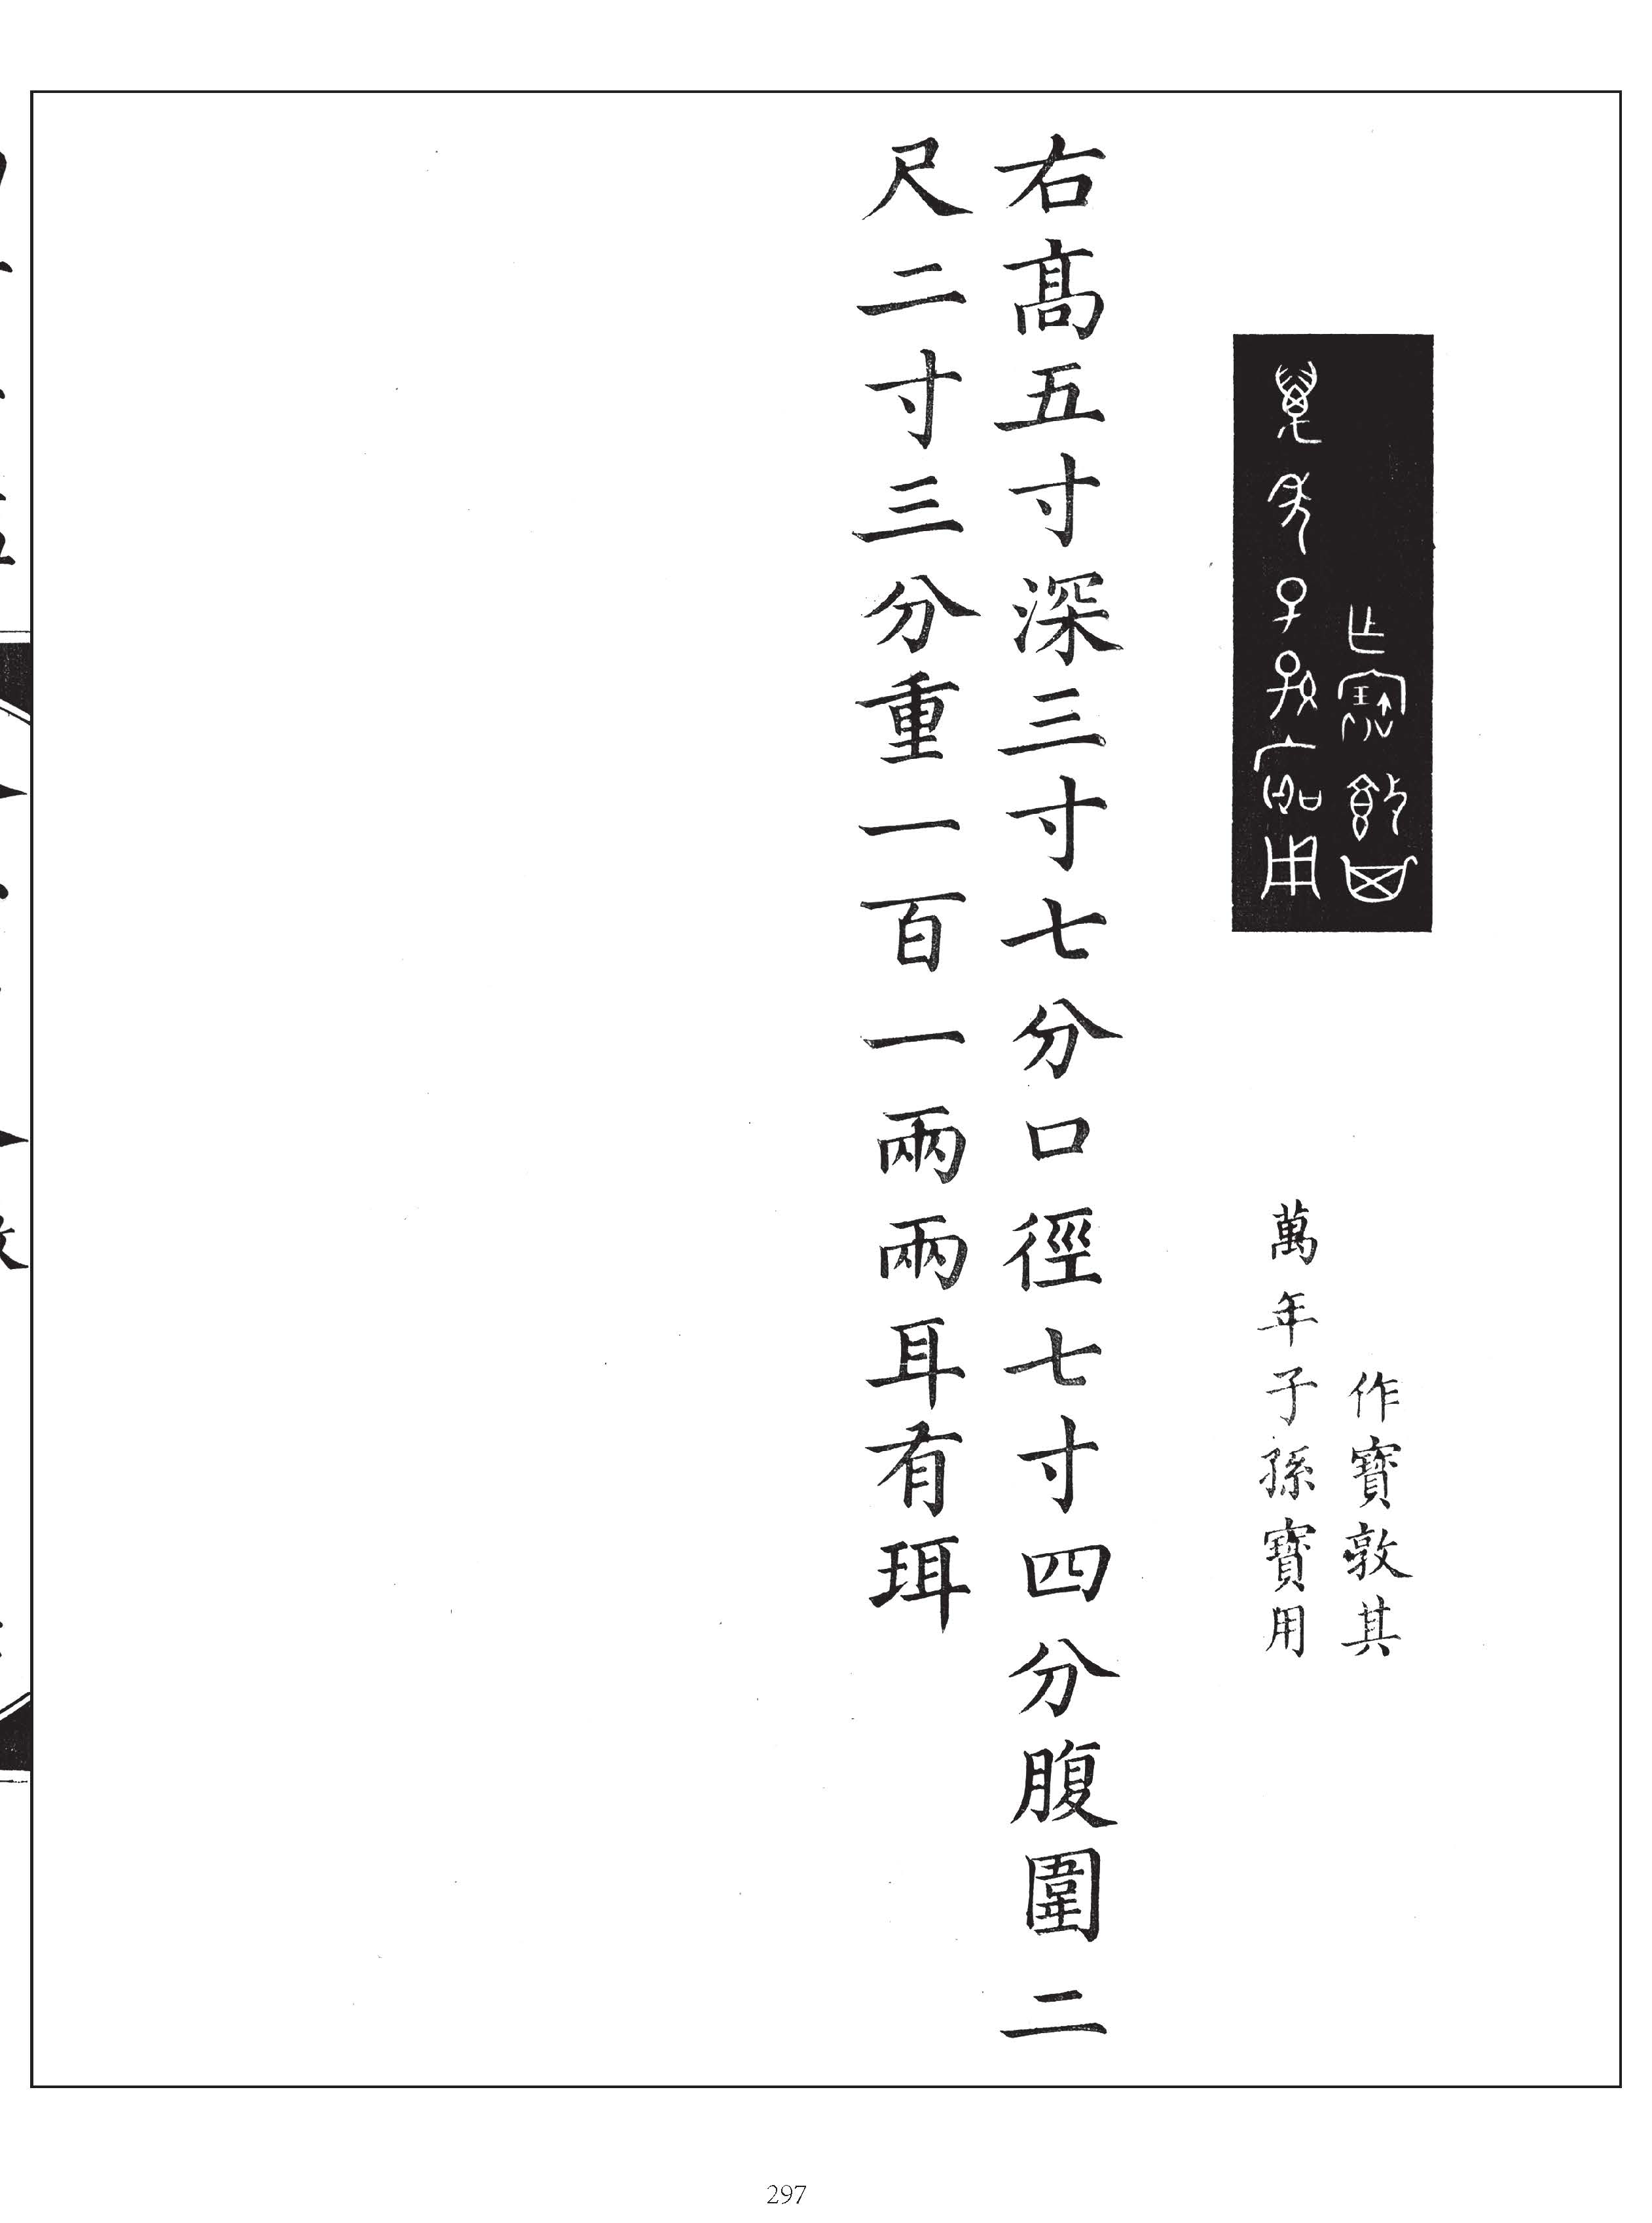 作寶敦其
萬年子孫寶用
右高五寸深三寸七分口徑七寸四分腹圍二
尺二寸三分重一百一兩兩耳有珥
297